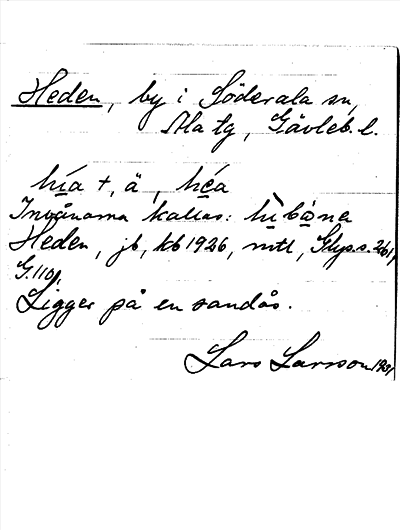 Heden, by i Söderala sn,
Ala tg, Gävleb. l.
hía +, ä, héa
Invånarna kallas: hìbòna
Heden, jb, kb 1926, mtl, Glyp. s. 260,
G. 110,
Ligger på en sandås.
Lars Larsson 1931